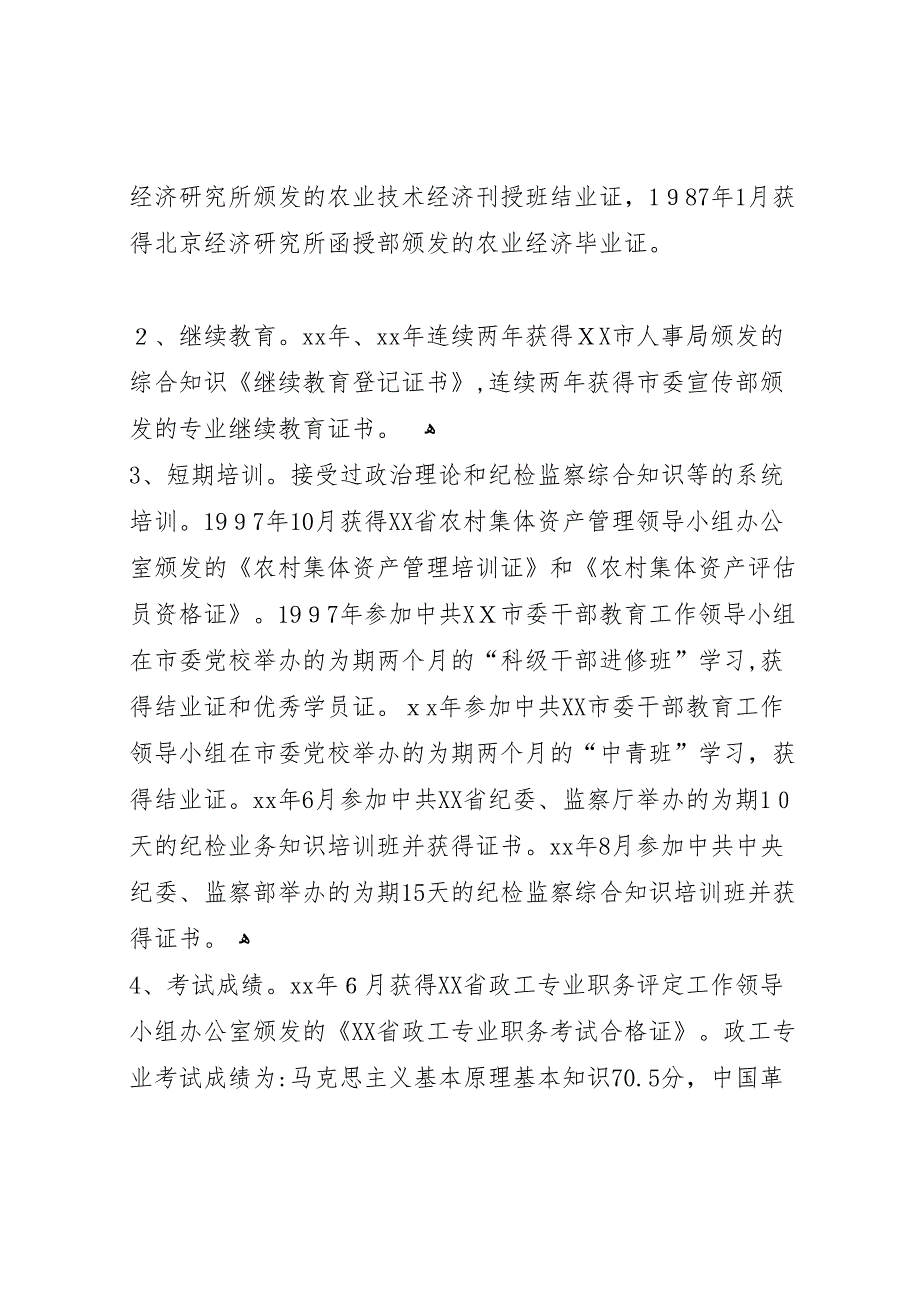 经济研究所颁发的农业技术经济刊授班结业证，1987年1月获
得北京经济研究所函授部颁发的农业经济毕业证。
２、继续教育。xx年、xx年连续两年获得ＸX市人事局颁发的
综合知识《继续教育登记证书》,连续两年获得市委宣传部颁
发的专业继续教育证书。 ﻫ
3、短期培训。接受过政治理论和纪检监察综合知识等的系统
培训。1997年10月获得XX省农村集体资产管理领导小组办公
室颁发的《农村集体资产管理培训证》和《农村集体资产评估
员资格证》。1997年参加中共XＸ市委干部教育工作领导小组
在市委党校举办的为期两个月的“科级干部进修班”学习,获
得结业证和优秀学员证。ｘx年参加中共XX市委干部教育工作
领导小组在市委党校举办的为期两个月的“中青班”学习，获
得结业证。xx年6月参加中共XX省纪委、监察厅举办的为期10
天的纪检业务知识培训班并获得证书。xx年8月参加中共中央
纪委、监察部举办的为期15天的纪检监察综合知识培训班并获
得证书。 ﻫ
4、考试成绩。xx年６月获得XX省政工专业职务评定工作领导
小组办公室颁发的《XX省政工专业职务考试合格证》。政工专
业考试成绩为:马克思主义基本原理基本知识70.5分，中国革